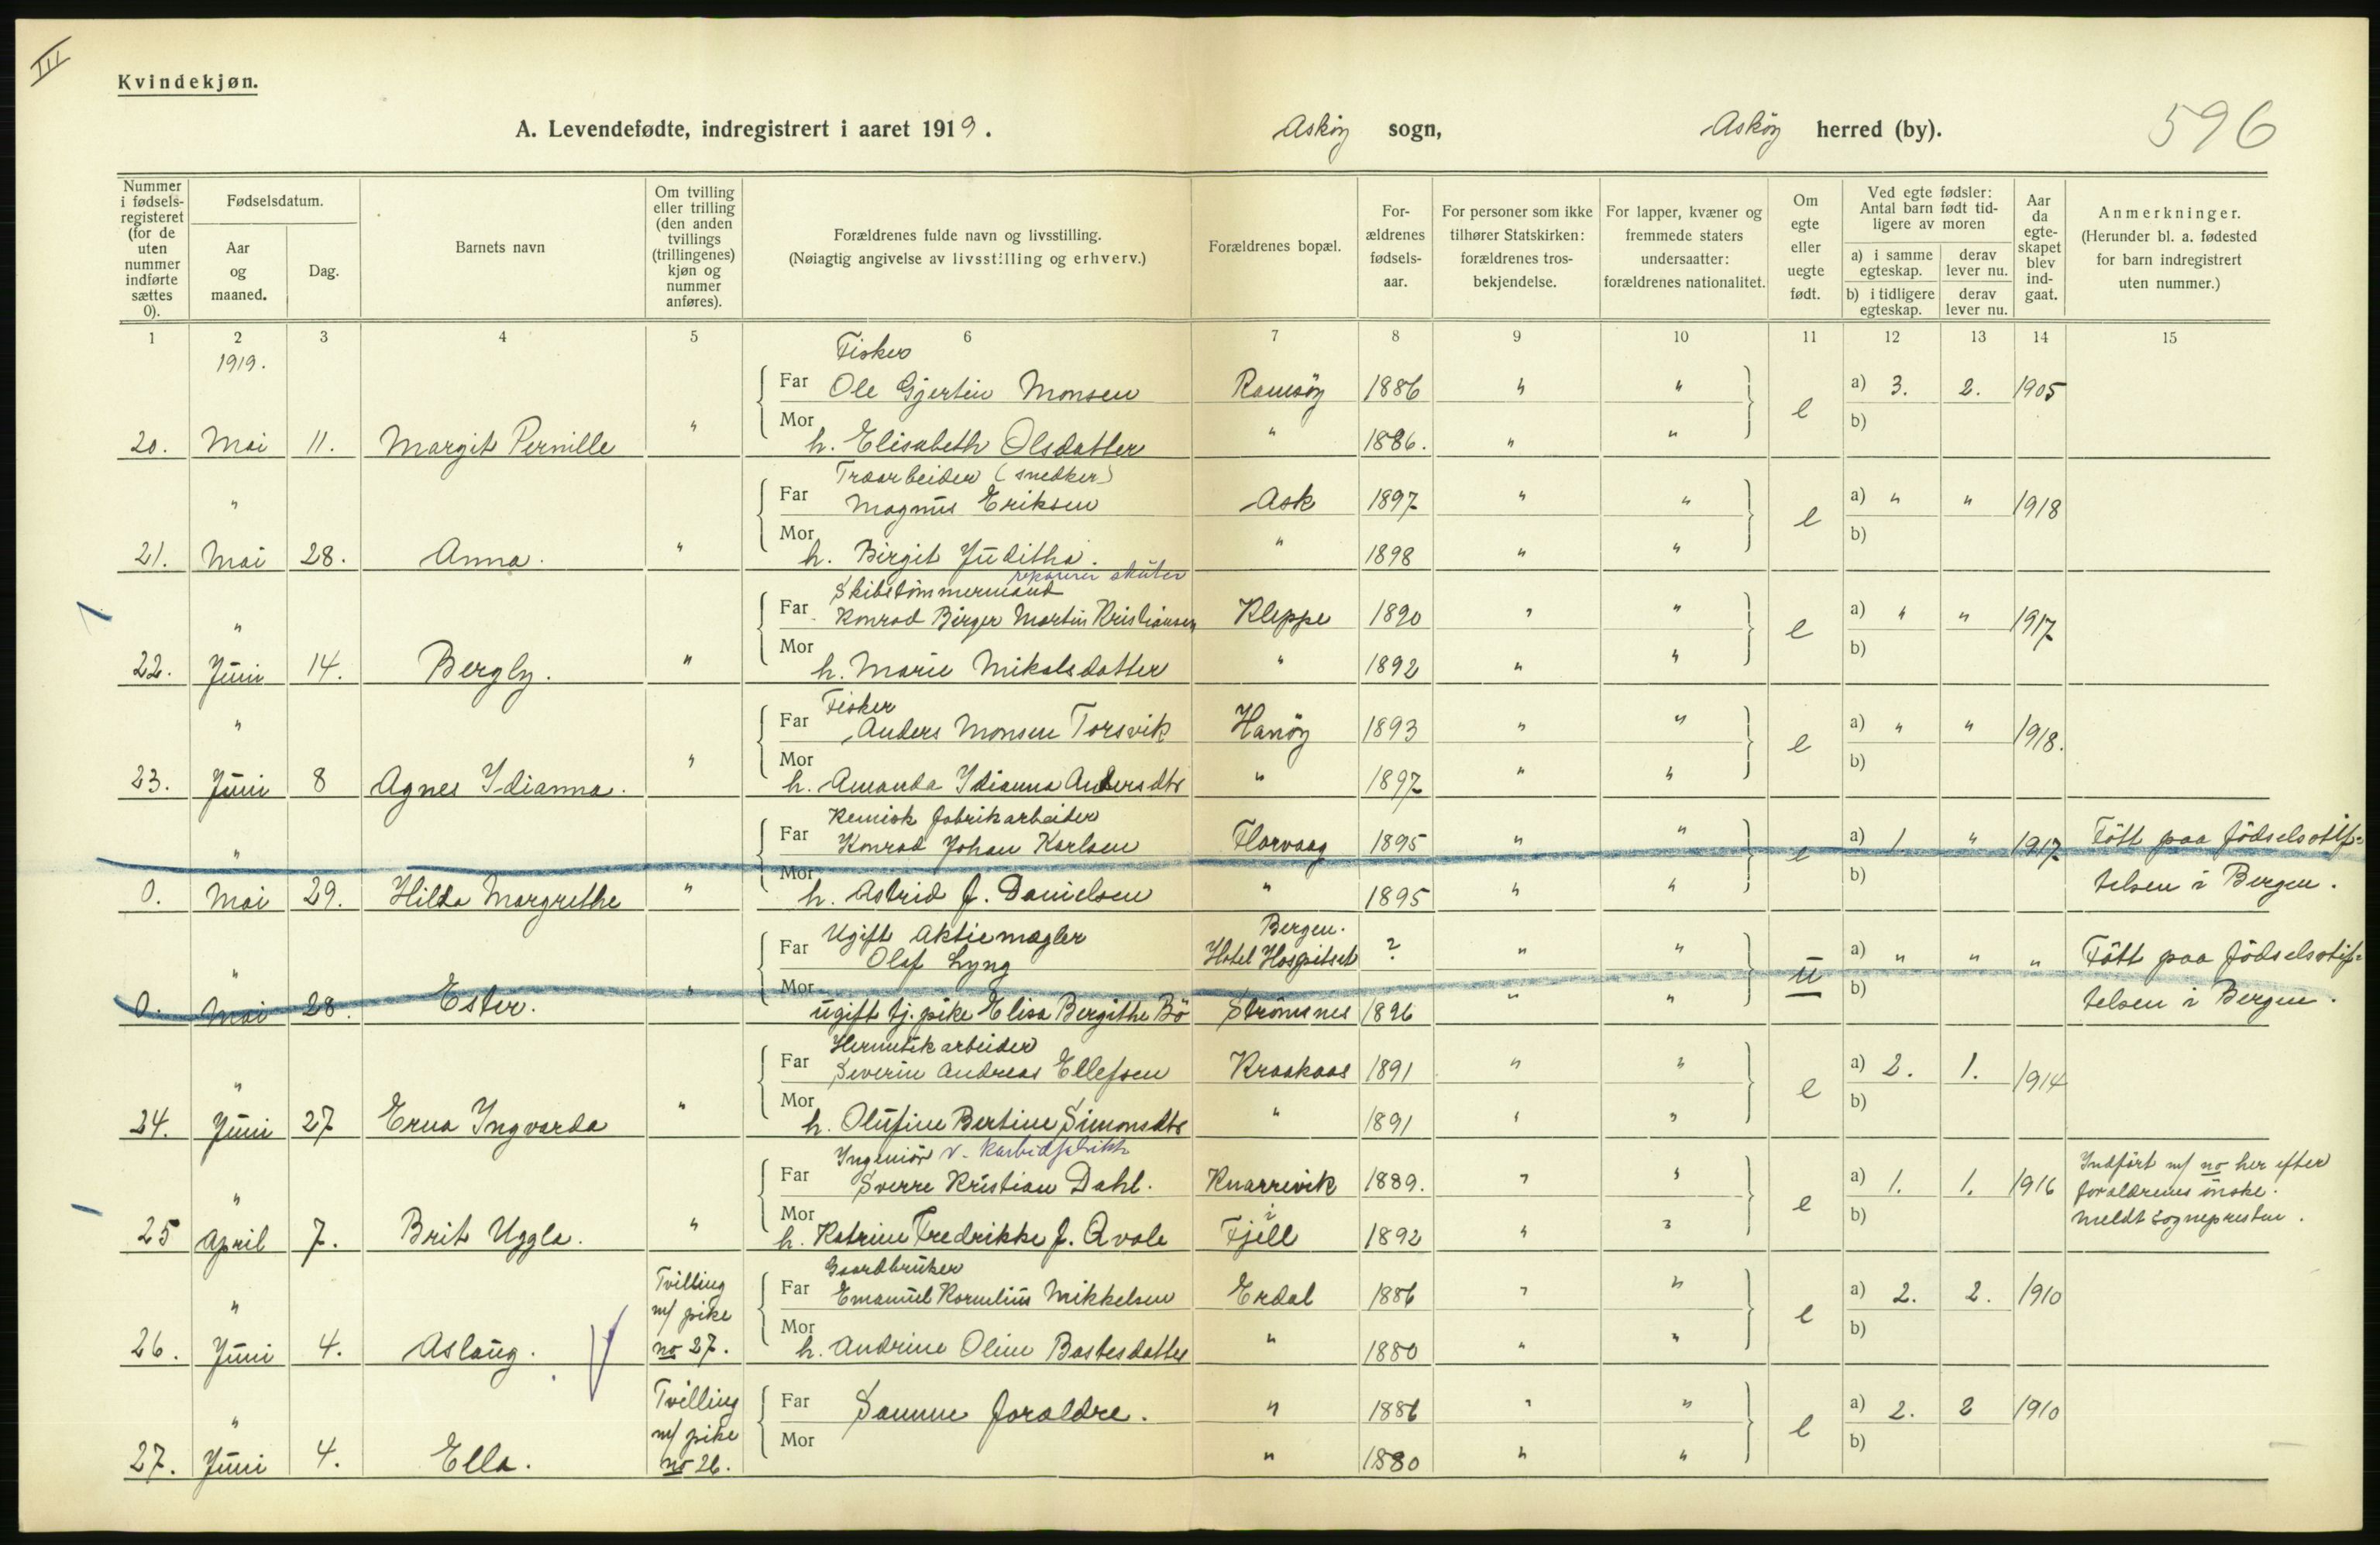 III
Kvindekjøn.
A. Levendefødte, indregistrert i aaret 1919. Askøy sogn, Askøy herred (by). 596
Nummer i fødselsregisteret (for de uten nummer indførte sættes 0).
Fødselsdatum.
Aar og maaned.
Dag.
Barnets navn
Om tvilling eller trilling (den anden tvillings (trillingenes) kjøn og nummer anføres).
Forældrenes fulde navn og livsstilling.
(Nøiagtig angivelse av livsstilling og erhverv.)
Forældrenes bopæl.
Forældrenes fødselsaar.
For personer som ikke tilhører Statskirken: forældrenes trosbekjendelse.
For lapper, kvæner og fremmede staters undersaatter: forældrenes nationalitet.
Om egte eller uegte født.
Ved egte fødsler: Antal barn født tidligere av moren
a) i samme egteskap. derav lever nu.
b) i tidligere egteskap. derav lever nu.
Aar da egteskapet blev indgaat.
Anmerkninger.
(Herunder bl. a. fødested for barn indregistrert uten nummer.)
1 2 3 4 5 6 7 8 9 10 11 12 13 14 15
1919.
Fisker
Far Ole Gjertin Monsen Ramsöy 1886 " " e a) 3. 2. 1905
20. Mai 11. Margit Pernille " Mor h. Elisabeth Olsdatter " 1886. " " b)
Træarbeider (snedker)
" Far Magnus Eriksen Ask 1897 " " e a) " " 1918
21. Mai 28. Anna. " Mor h. Birgit Juditha. " 1898 " " b)
Skibstömmermand reparerer skuter
" Far Konrad Birger Martin Kristiansen Kleppe 1890 " " e a) " " 1917
22. Juni 14. Bergly. " Mor h. Marie Mikalsdatter " 1892 " " b)
Fisker
" Far Anders Monsen Torsvik Hanöy 1893 " " e a) " " 1918.
23. Juni 8 Agnes Idianna. " Mor h. Amanda Idianna Andersdtr " 1897 " " b)
Kemisk fabrikarbeider
" Far Konrad Johan Karlsen Florvaag 1895 " " e a) 1 " 1917 Född paa födselsstif=
0. Mai 29. Hilda Margrethe " Mor h. Astrid f. Danielsen " 1895 " " b) telsen i Bergen.
Ugift Aktiemægler Bergen.
" Far Olaf Lyng Hotel Hospitset ? " " u a) " " " Födt paa födselsstif=
0. Mai 28. Ester. " Mor ugift tj. pike Elisa Bergithe Bö Strömsnes 1896 " " b) telsen i Bergen.
Hermetikarbeider
" Far Severin Andreas Ellefsen Kraakaas 1891 " " e a) 2. 1. 1914
24. Juni 27 Erna Ingvarda " Mor h. Olufine Bertine Simonsdtr " 1891 " " b)
Ingeniör v. karbidfabrikk
" Far Sverre Kristian Dahl. Knarrevik 1889. " " e a) 1. 1. 1916 Indfört m/ no her efter forældrenes önske.
25 April 7. Brit Uggla. " Mor h. Katrine Fredrikke f. Qvale i Fjell 1892 " " b) meldt sognepresten.
Gaardbruker
" Tvilling m/ pike no 27. Far Emanuel Kornelius Mikkelsen Erdal 1886 " " e a) 2. 2. 1910
26. Juni 4. Aslaug. Mor h. Andrine Oline Bastesdatter " 1880 " " b)
" Tvilling m/ pike no 26. Far Samme forældre. " 1886 " " e a) 2. 2 1910
27. Juni 4. Ella. Mor " 1880 " " b)